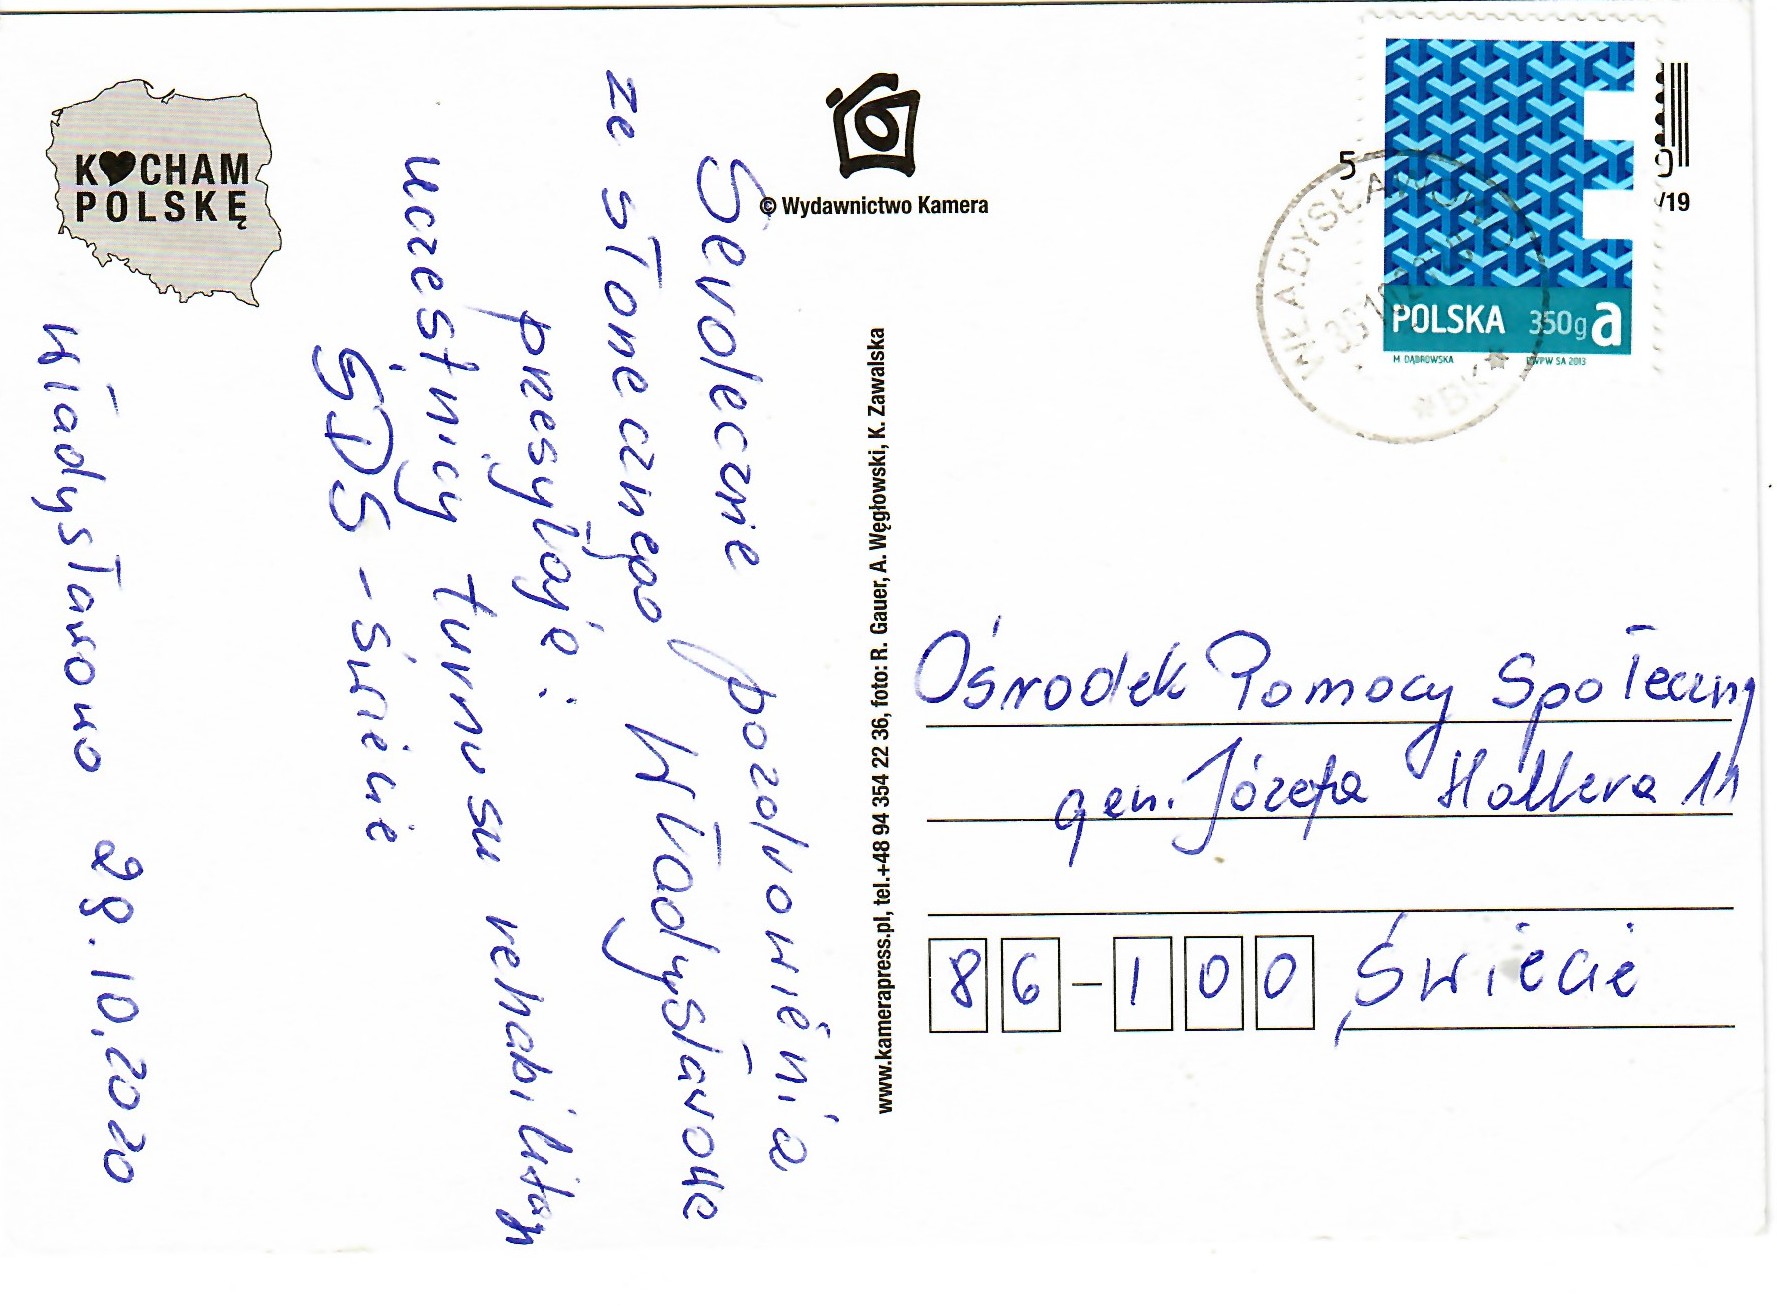 K♥CHAM
POLSKĘ
© Wydawnictwo Kamera
5
/19
WŁADYSŁAWOWO
POLSKA 350g a
M. DĄBROWSKA PWPW SA 2013
Serdeczne pozdrowienia
ze słonecznego Władysławowa
przesyłają:
uczestnicy turnusu rehabilitacyj
ŚDS - Świecie
Władysławowo 28.10.2020
www.kamerapress.pl, tel.+48 94 354 22 36, foto: R. Gauer, A. Węgłowski, K. Zawalska
Ośrodek Pomocy Społeczny
gen. Józefa Hallera 11
86-100 Świecie